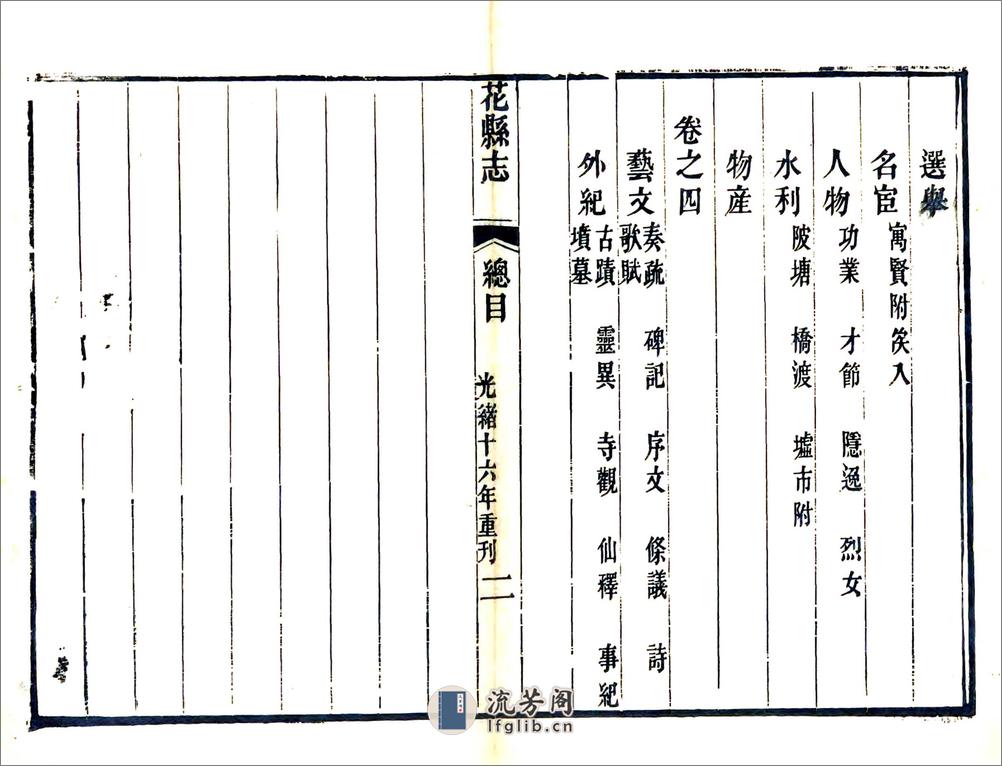 選舉
名宦 寓賢附 入
人物 功業 才節 隱逸 烈女
水利 陂塘 橋渡 墟市附
物産
卷之四
藝文 奏疏 碑記 序文 條議 詩
歌賦
外紀 古蹟 靈異 寺觀 仙釋 事紀
墳墓
花縣志 總目 光緒十六年重刊 二
流芳阁
lfglib.cn